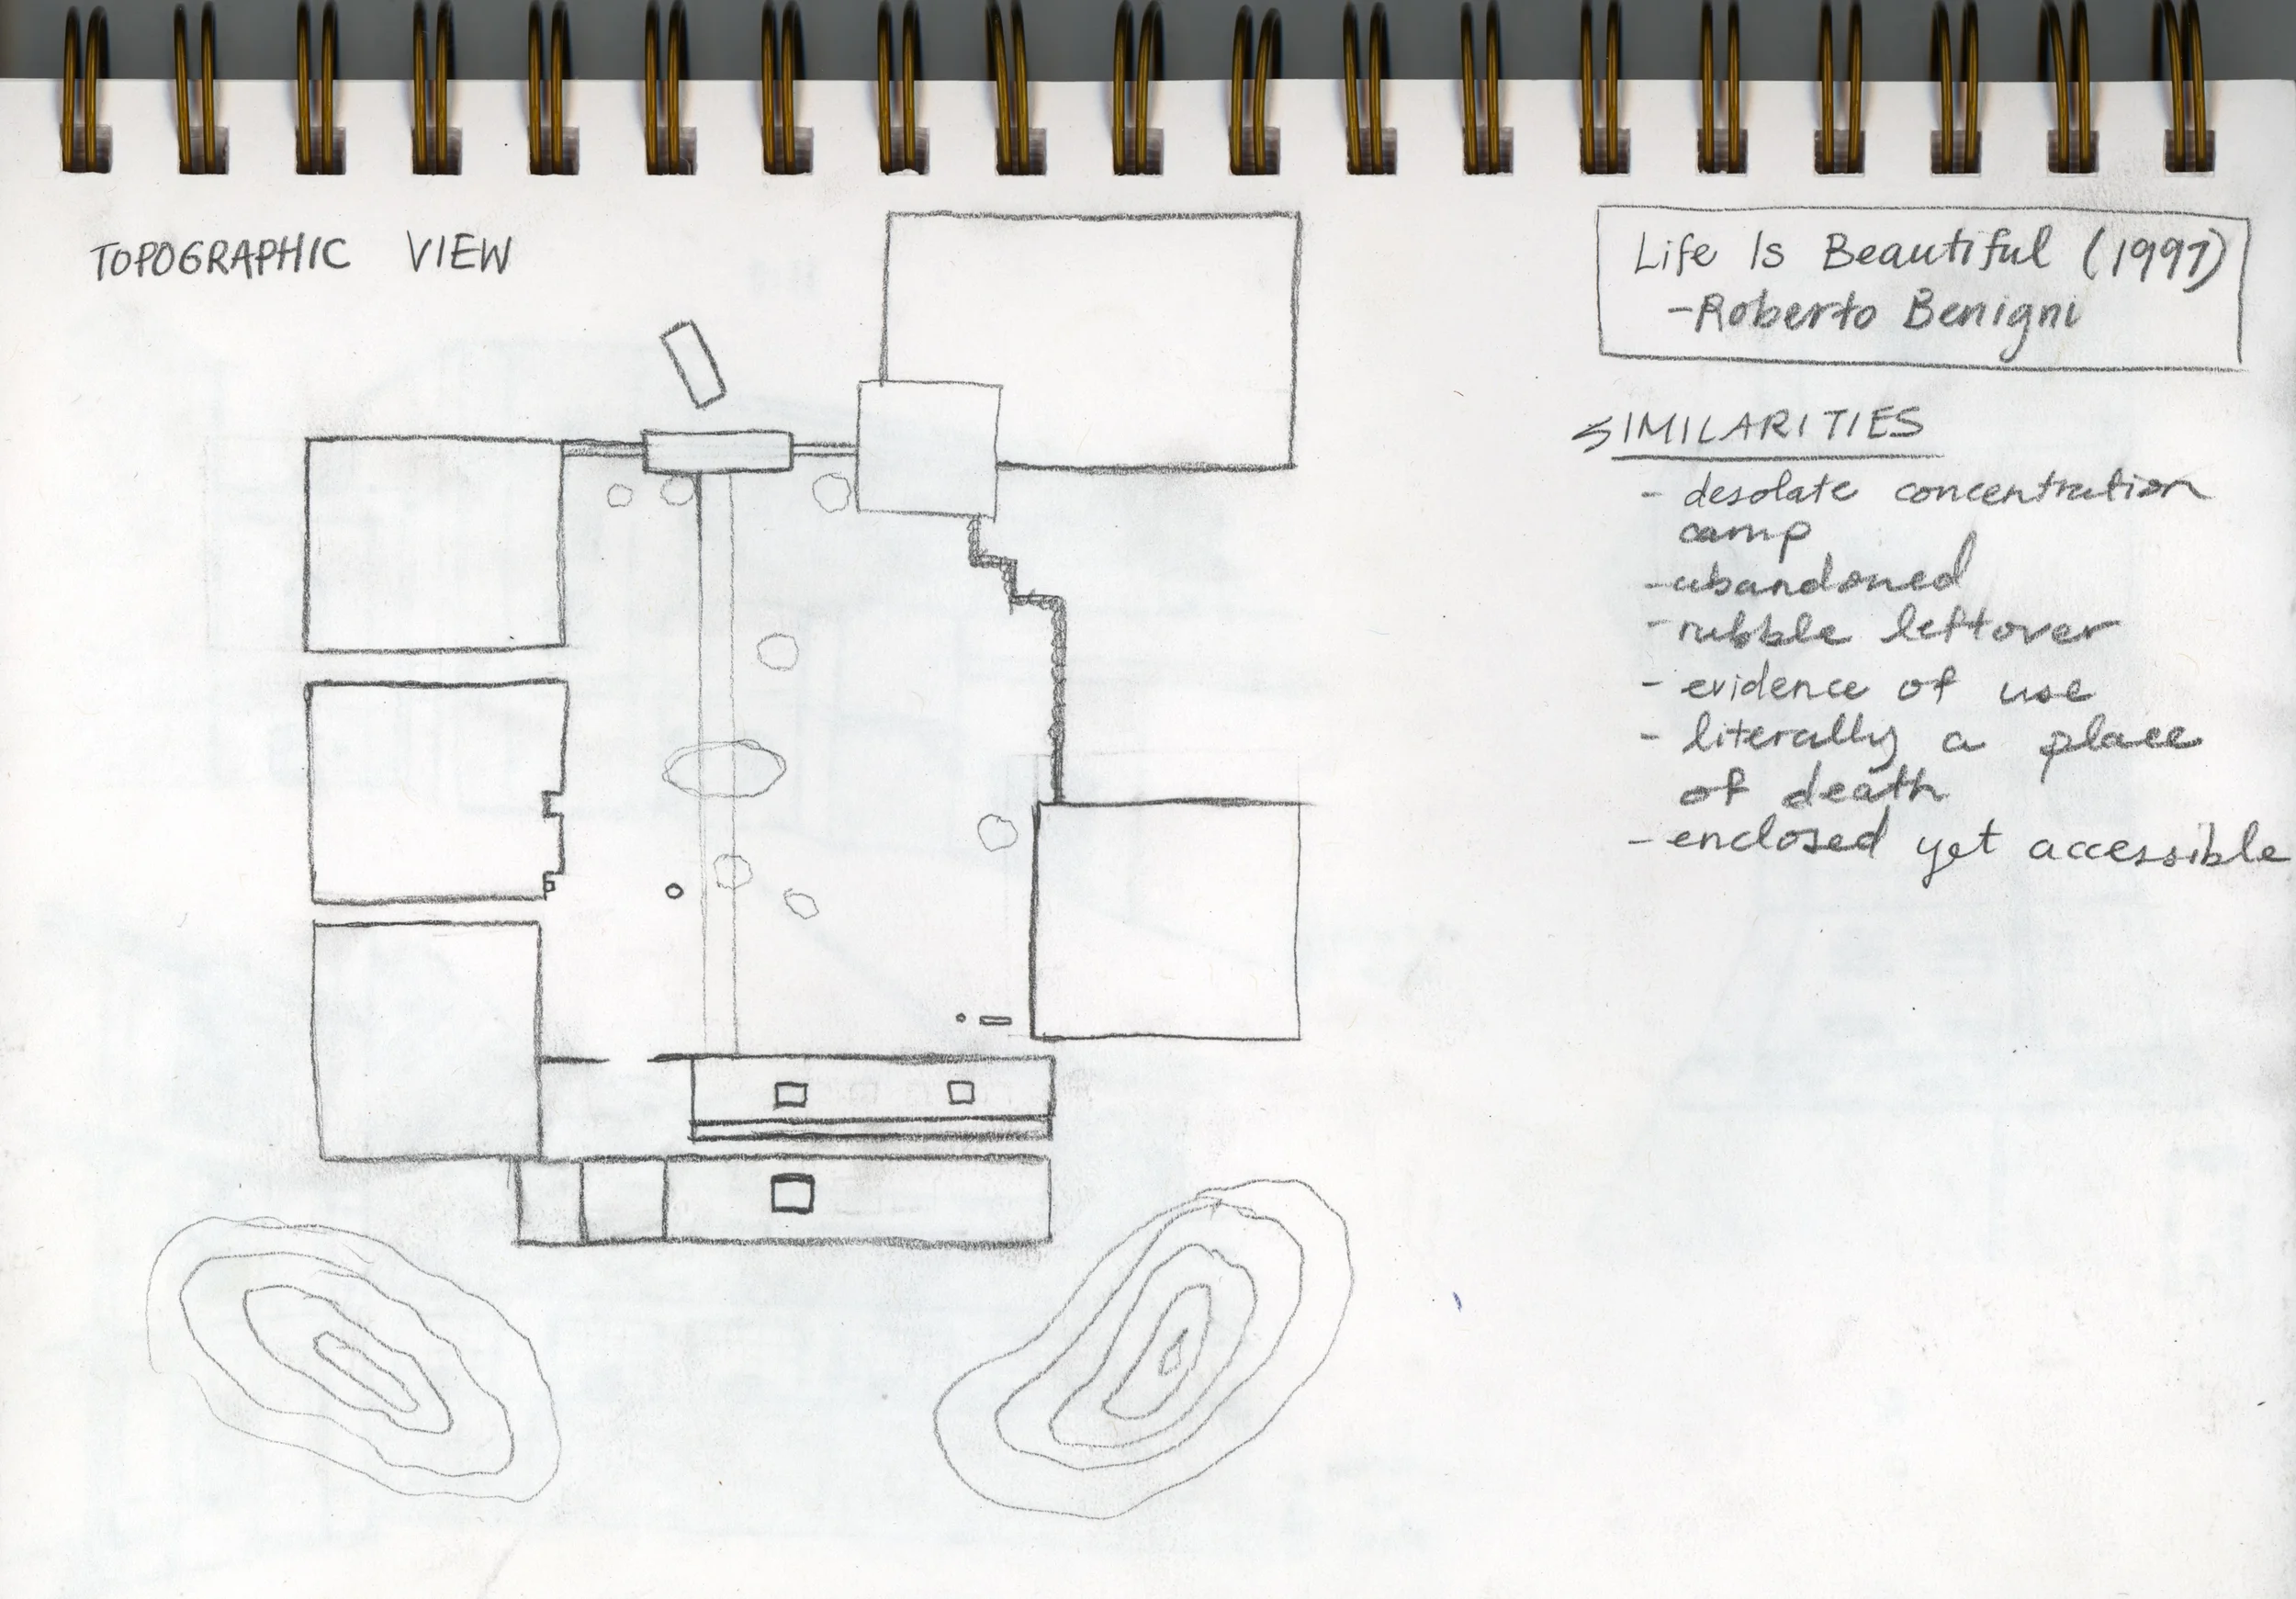 TOPOGRAPHIC VIEW
Life Is Beautiful (1997)
-Roberto Benigni
SIMILARITIES
- desolate concentration
camp
- abandoned
- rubble leftover
- evidence of use
- literally a place
of death
- enclosed yet accessible